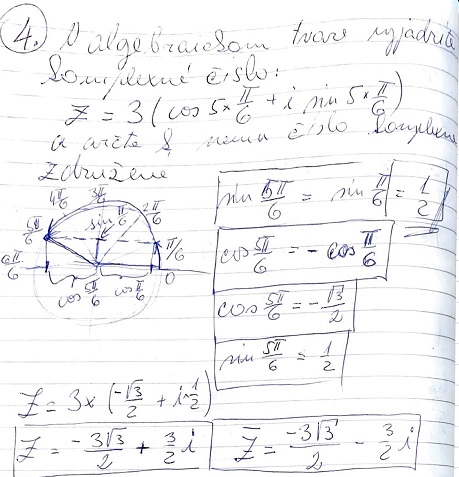 4. V algebraickom tvare vyjadrite
komplexné číslo:
Z = 3 (cos 5 × π/6 + i sin 5 × π/6)
a určte k nemu číslo komplexne
združené
sin 5π/6 = sin π/6 = 1/2
4π/6 3π/6 2π/6
5π/6 sin π/6 π/6
6π/6 0
cos 5π/6 cos π/6
cos 5π/6 = - cos π/6
cos 5π/6 = -√3/2
sin 5π/6 = 1/2
Z = 3 × (-√3/2 + i × 1/2)
Z = -3√3/2 + 3/2 i Z̄ = -3√3/2 - 3/2 i